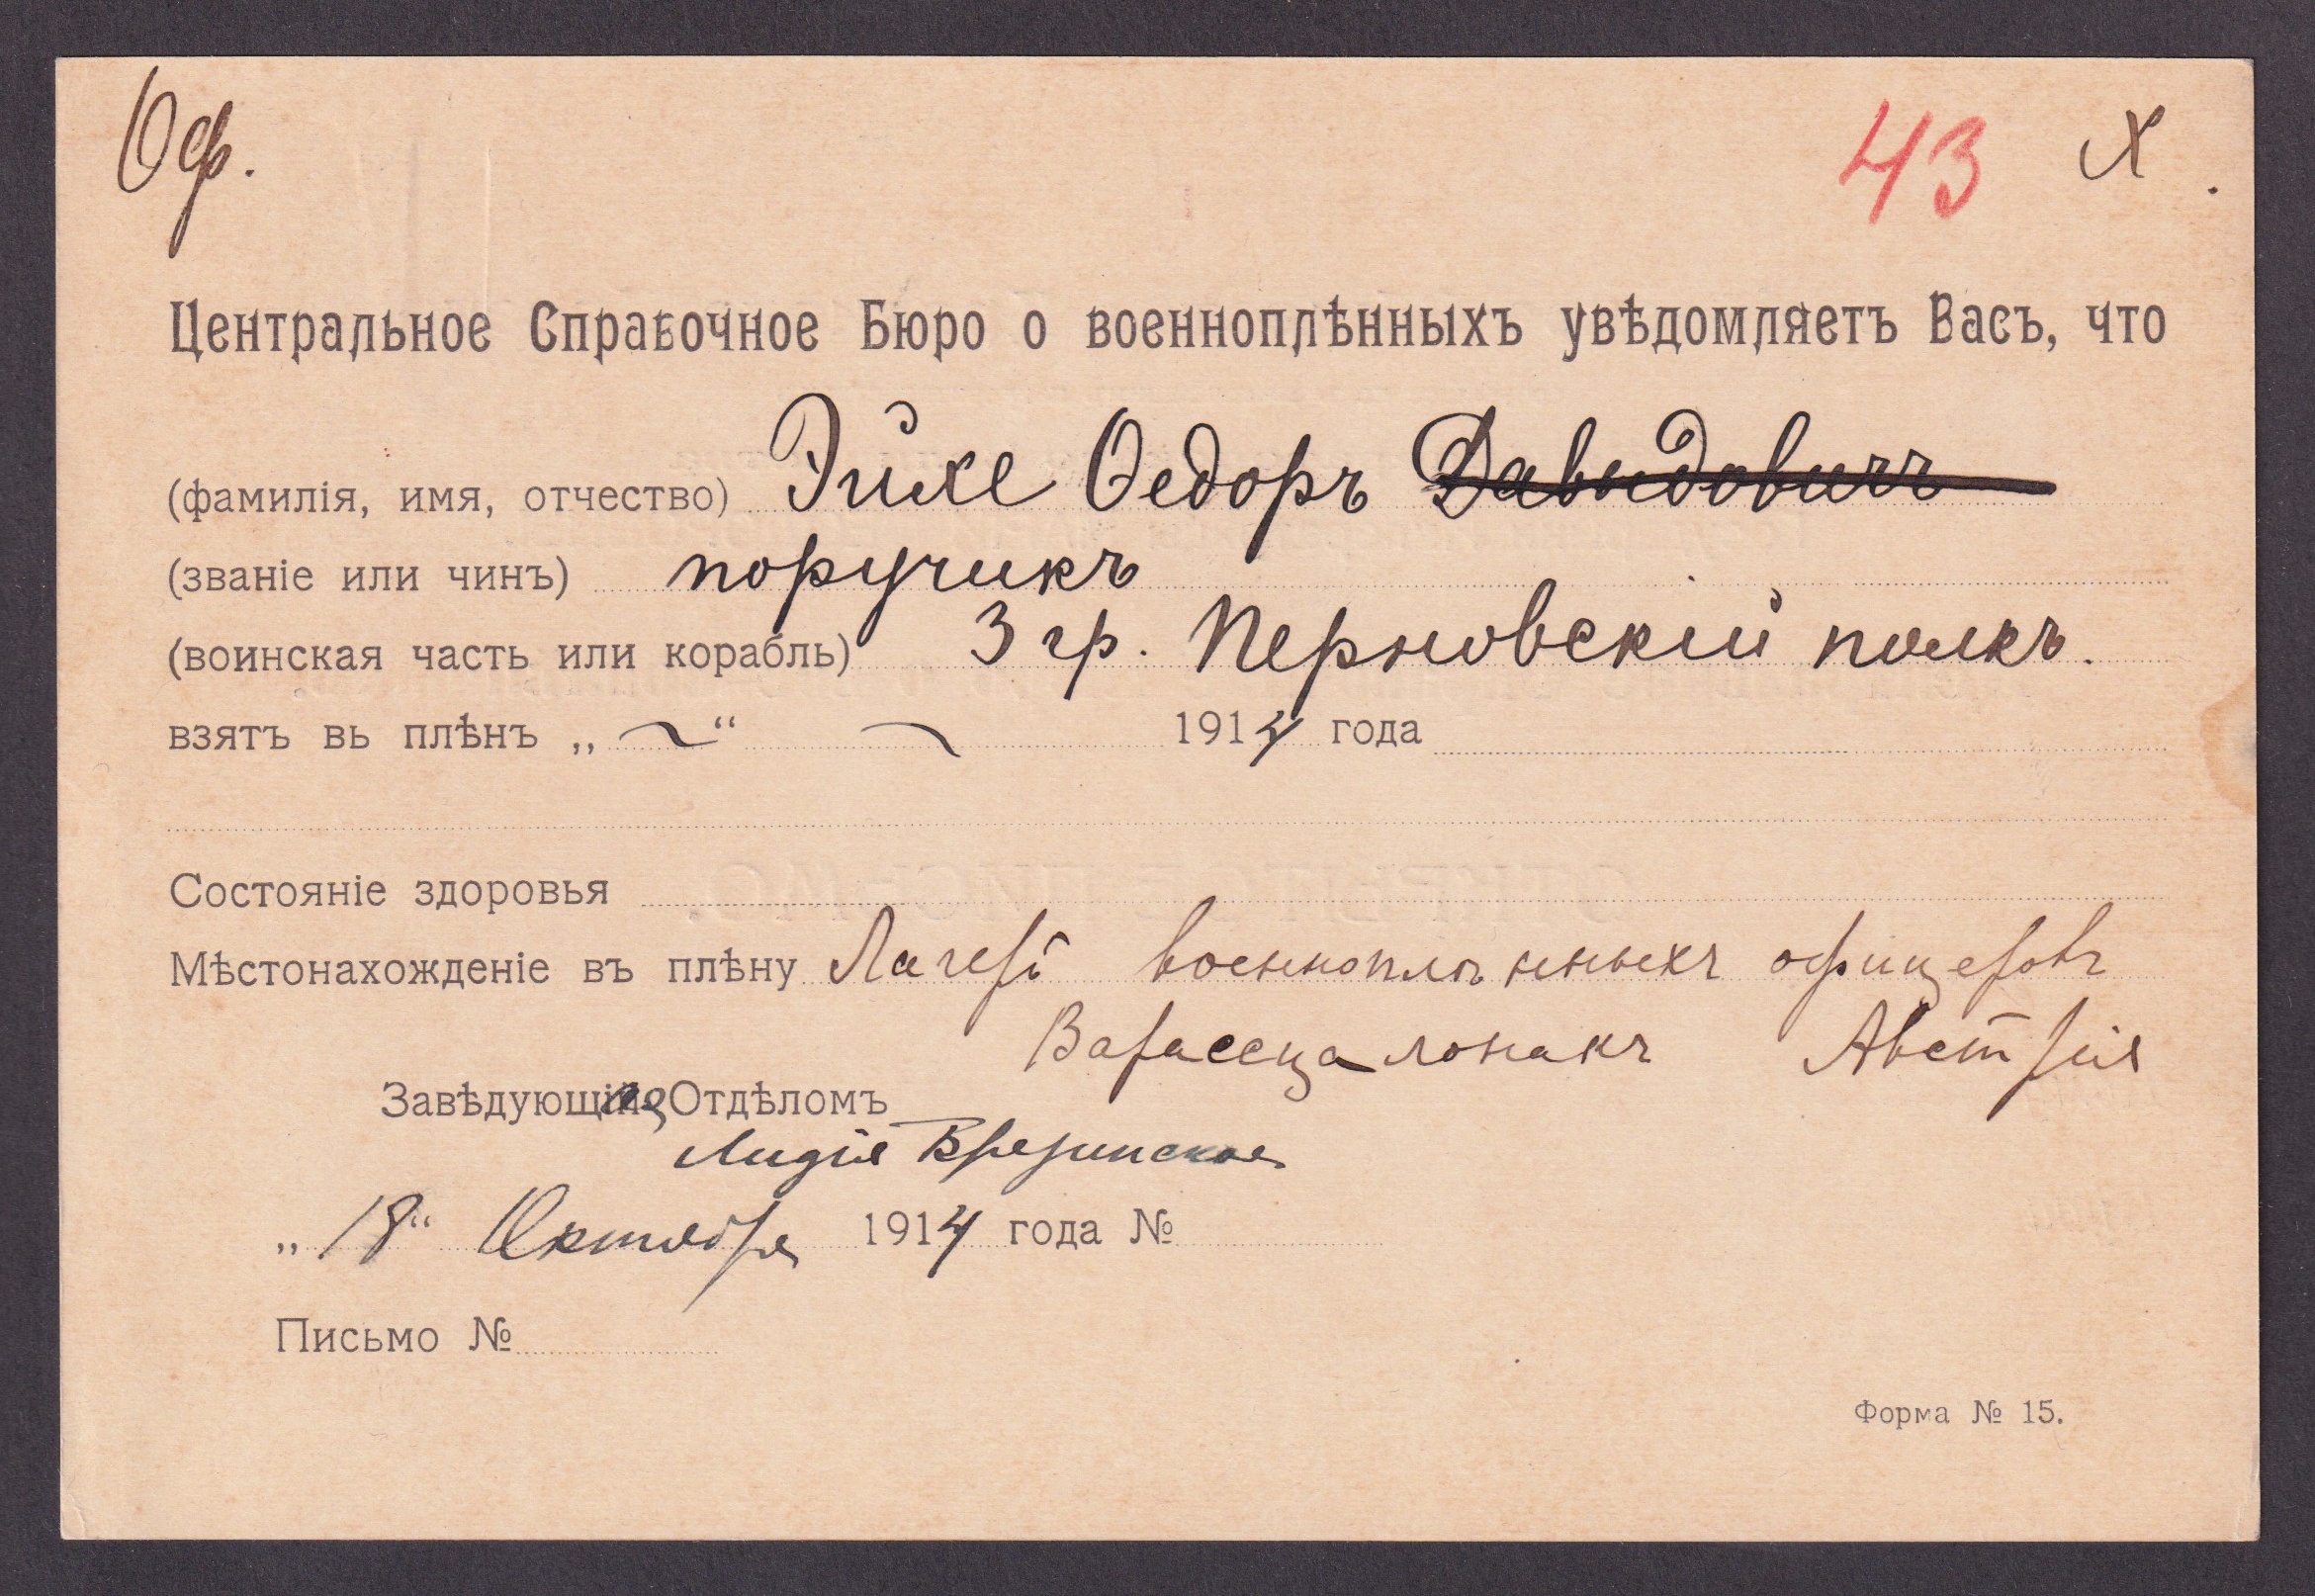 Оф.
43 Х.
Центральное Справочное Бюро о военноплѣнныхъ увѣдомляетъ Васъ, что
(фамилія, имя, отчество) Эйхе Ѳедоръ Давыдовичъ
(званіе или чинъ) поручикъ
(воинская часть или корабль) 3 гр. Перновскій полкъ.
взятъ вь плѣнъ „ — “ — 1914 года
Состояніе здоровья
Мѣстонахожденіе въ плѣну Лагерь военноплѣнныхъ офицеровъ
Варассцалонакъ Австрія
Завѣдующая Отдѣломъ
Лидія
„18“ Октября 1914 года №
Письмо №
Форма № 15.